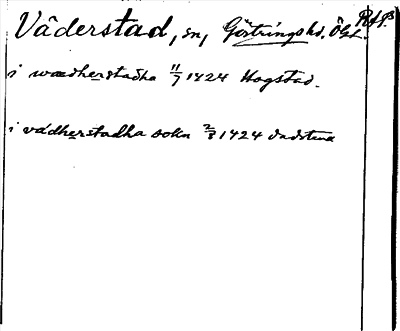 Väderstad, sn, Göstringshd. Ögl. RAP
i wædherstadha 11/7 1424 Hogstad.
i vädherstadha sokn 2/8 1424 Vadstena